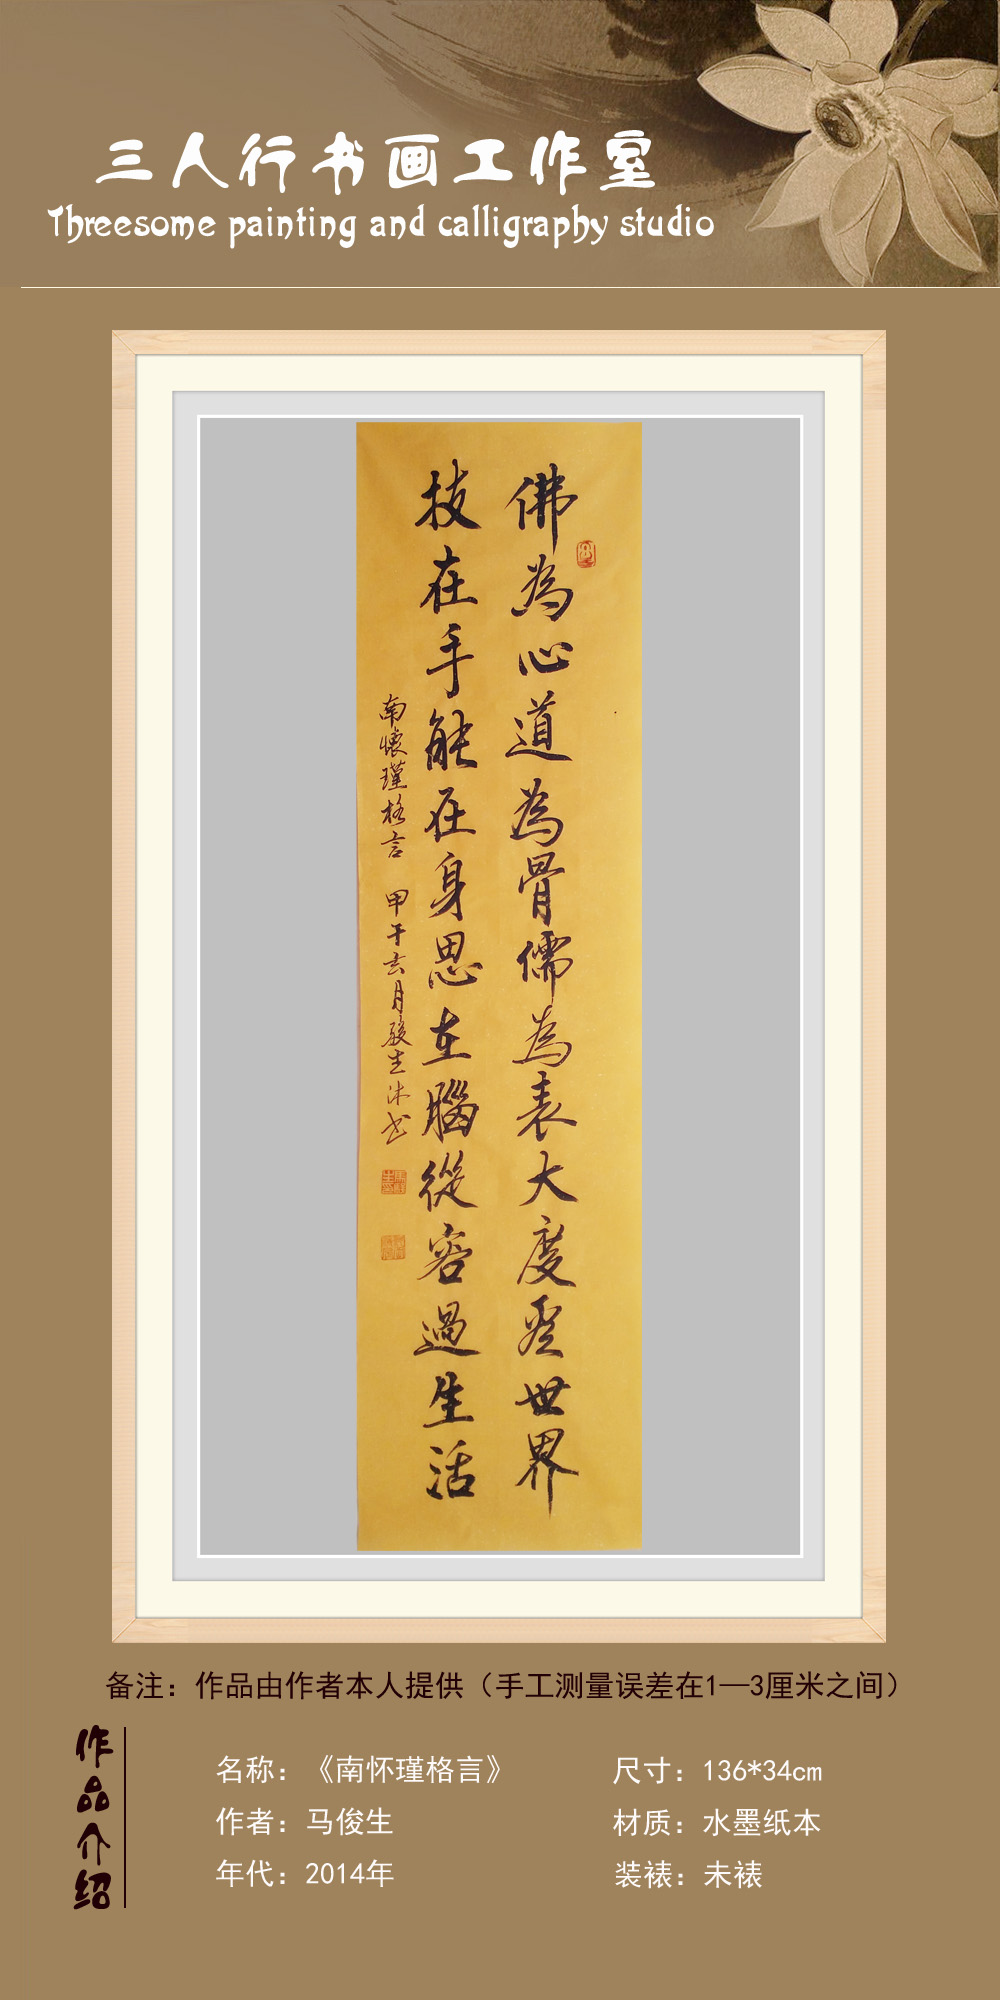 三人行书画工作室
Threesome painting and calligraphy studio
佛為心道為骨儒為表大度看世界
技在手能在身思在腦從容過生活
南懷瑾格言 甲午玄月駿生沐书
备注：作品由作者本人提供（手工测量误差在1—3厘米之间）
作品介绍
名称：《南怀瑾格言》
作者：马俊生
年代：2014年
尺寸：136*34cm
材质：水墨纸本
装裱：未裱